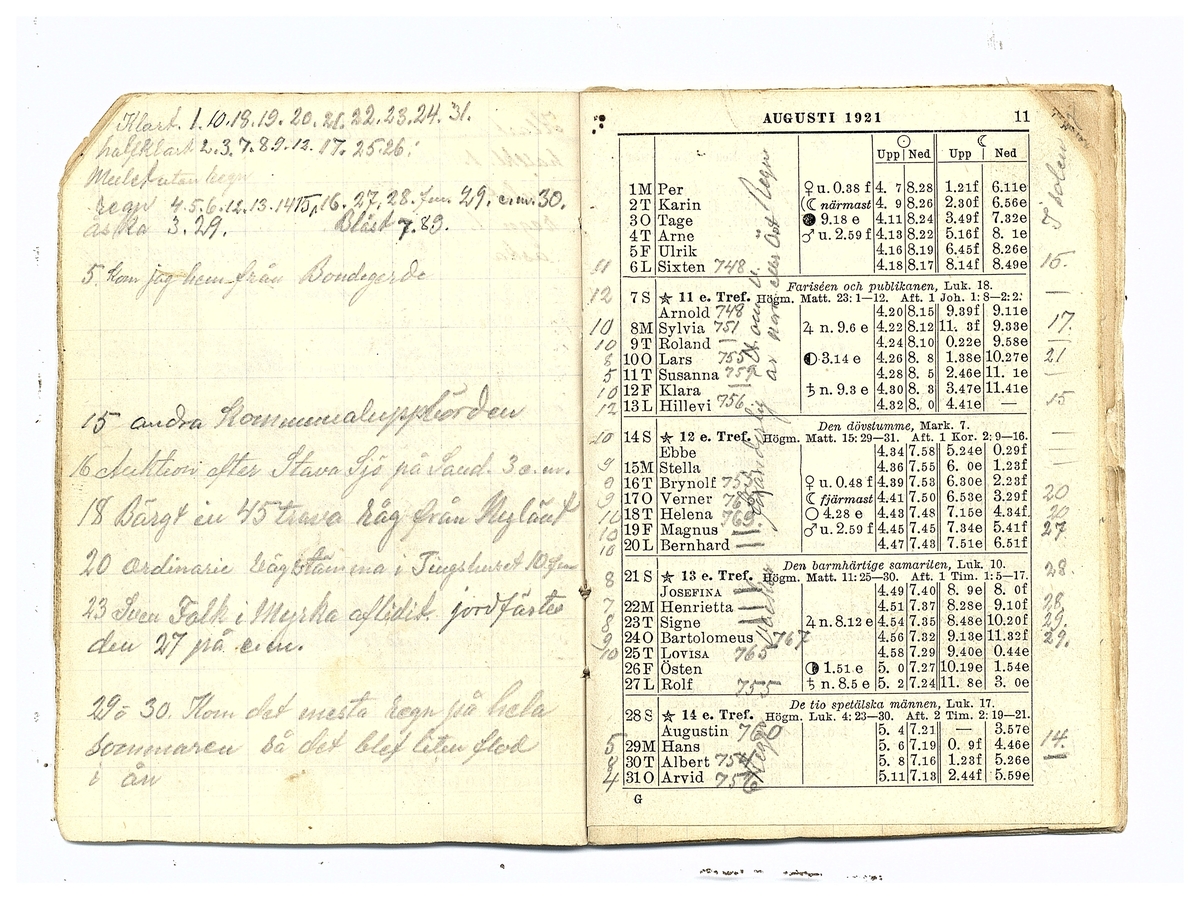 Klart. 1.10.18.19.20.21.22.23.24.31.
halfklart 2.3.7.8.9.12. 17. 25.26.
Mulet utan regn
regn 4.5.6.12.13.14.15.16.27.28. fm 29. e.m. 30.
åska 3.29. Blåst 7.8.9.
5. Kom jag hem från Bondegerde
15 andra Kommunaluppbörden
16 Auktion efter Stava Sjö på Saud. 3 e.m.
18 Bärgt in 45 trava råg från
20 ordinarie vägstämma i Tingshuset 10 fm
23 Sven Falk i Myrka aflidit. jordfästes
den 27 på e.m.
29 o 30. Kom det mesta regn på hela
sommaren så det blef liten flod
i ån
AUGUSTI 1921 11
☉ ☾
Upp Ned Upp Ned
1 M Per ♀ u. 0.38 f 4. 7 8.28 1.21f 6.11e
2 T Karin ☾ närmast 4. 9 8.26 2.30f 6.56e
3 O Tage ● 9.18 e 4.11 8.24 3.49f 7.32e
4 T Arne ♂ u. 2.59 f 4.13 8.22 5.16f 8. 1e
5 F Ulrik 4.16 8.19 6.45f 8.26e
11 6 L Sixten 748 4.18 8.17 8.14f 8.49e 16.
Fariséen och publikanen, Luk. 18.
12 7 S ☆ 11 e. Tref. Högm. Matt. 23: 1—12. Aft. 1 Joh. 1: 8—2: 2.
Arnold 748 4.20 8.15 9.39f 9.11e
10 8 M Sylvia 751 ♃ n. 9.6 e 4.22 8.12 11. 3f 9.33e 17.
10 9 T Roland 4.24 8.10 0.22e 9.58e
8 10 O Lars 755 ◐ 3.14 e 4.26 8. 8 1.38e 10.27e 21
5 11 T Susanna 759 4.28 8. 5 2.46e 11. 1e
10 12 F Klara ♄ n. 9.3 e 4.30 8. 3 3.47e 11.41e
12 13 L Hillevi 756 4.32 8. 0 4.41e — 15
Den dövstumme, Mark. 7.
10 14 S ☆ 12 e. Tref. Högm. Matt. 15: 29—31. Aft. 1 Kor. 2: 9—16.
Ebbe 4.34 7.58 5.24e 0.29f
9 15 M Stella 4.36 7.55 6. 0e 1.23f
16 T Brynolf ♀ u. 0.48 f 4.39 7.53 6.30e 2.23f
9 17 O Verner ☾ fjärmast 4.41 7.50 6.53e 3.29f 20
10 18 T Helena ○ 4.28 e 4.43 7.48 7.15e 4.34f 20
10 19 F Magnus ♂ u. 2.59 f 4.45 7.45 7.34e 5.41f 27
10 20 L Bernhard 4.47 7.43 7.51e 6.51f
Den barmhärtige samariten, Luk. 10.
8 21 S ☆ 13 e. Tref. Högm. Matt. 11: 25—30. Aft. 1 Tim. 1: 5—17. 28.
JOSEFINA 4.49 7.40 8. 9e 8. 0f
7 22 M Henrietta 4.51 7.37 8.28e 9.10f 28.
8 23 T Signe ♃ n. 8.12 e 4.54 7.35 8.48e 10.20f 29.
9 24 O Bartolomeus 767 4.56 7.32 9.13e 11.32f 29.
10 25 T LOVISA 765 4.58 7.29 9.40e 0.44e
26 F Östen ◑ 1.51 e 5. 0 7.27 10.19e 1.54e
27 L Rolf 755 ♄ n. 8.5 e 5. 2 7.24 11. 8e 3. 0e
De tio spetälska männen, Luk. 17.
28 S ☆ 14 e. Tref. Högm. Luk. 4: 23—30. Aft. 2 Tim. 2: 19—21.
Augustin 760 5. 4 7.21 — 3.57e
5 29 M Hans 5. 6 7.19 0. 9f 4.46e 14.
8 30 T Albert 754 5. 8 7.16 1.23f 5.26e
4 31 O Arvid 756 5.11 7.13 2.44f 5.59e
G